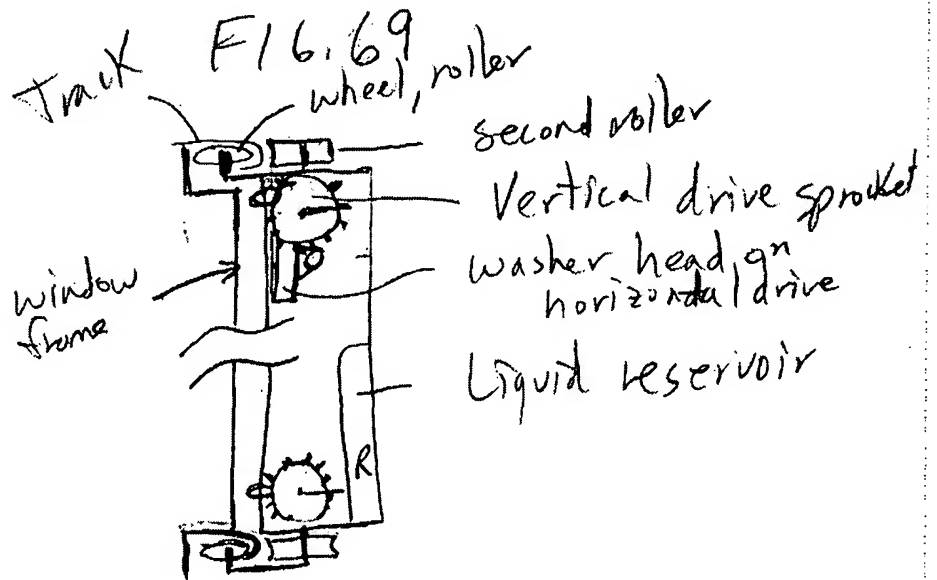 FIG. 69
Track
wheel, roller
second roller
Vertical drive sprocket
washer head on
horizontal drive
window
frame
Liquid reservoir
R